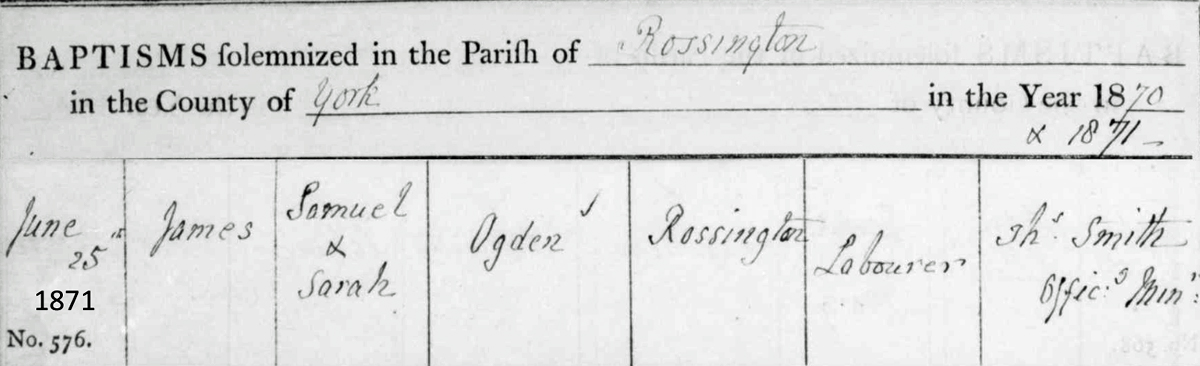 BAPTISMS ſolemnized in the Pariſh of Rossington
in the County of York in the Year 1870
& 1871
June 25
1871
No. 576.
James
Samuel
&
Sarah
Ogden
Rossington
Labourer
Smith
Offic:g Min:r